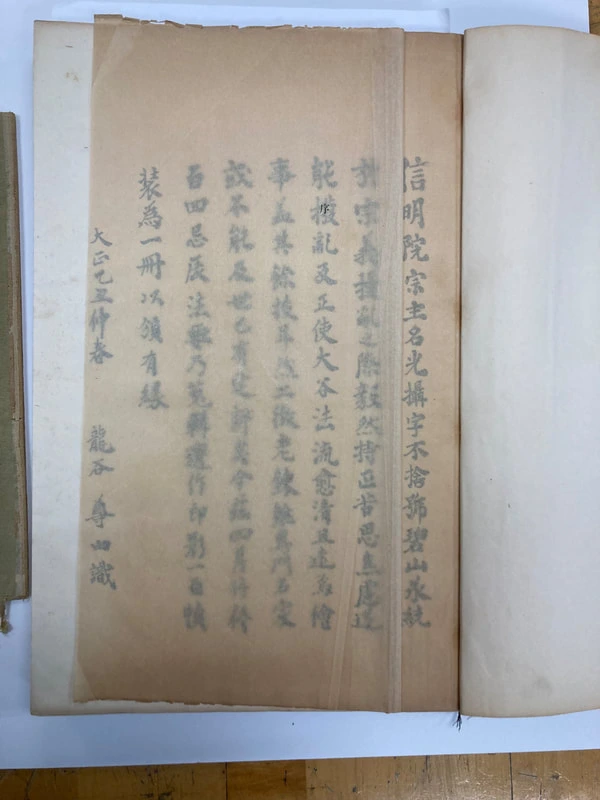 序
信明院宗主名光攝字不捨號碧山承統
於宗義擾亂之際毅然持正苦思焦慮遂
能撥亂反正使大谷法流愈清且遠為繪
事蓋其餘技耳然工徹老鍊專門名家
或不能及世已有定評矣今茲四月修
百四忌辰法要乃蒐輯遺作印影一百幀
裝為一冊以頒有緣
大正乙丑仲春 龍谷 尊由識